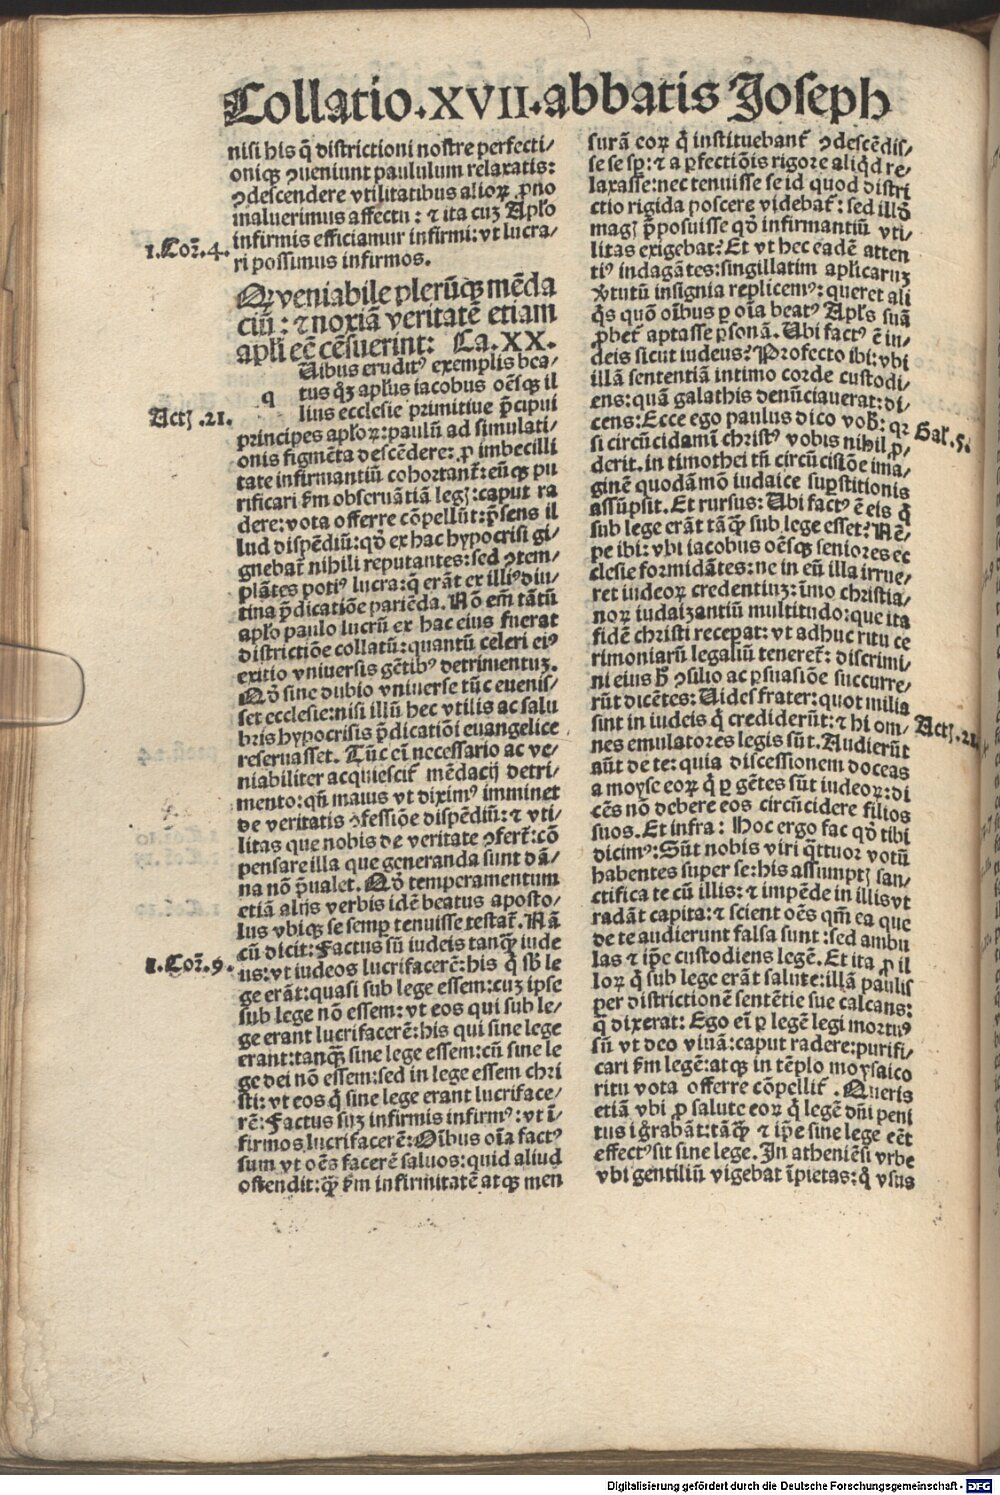 Collatio.XVII.abbatis Joseph
nisi his q̄ districtioni nostre perfecti/
oniqꝫ ꝯueniunt paululum relaxatis:
ꝯdescendere vtilitatibus alioꝝ ꝓno
maluerimus affectu: ⁊ ita cuꝫ Apl̄o
infirmis efficiamur infirmi: vt lucra/
1.Coꝛ̄.4.
ri possimus infirmos.
Qꝙ veniabile plerūqꝫ mēda
ciū: ⁊ noxiā veritatē etiam
apl̄i eē cēsuerint: Ca.XX.
q Uibus eruditꝰ exemplis bea/
tus qꝫ apl̄us iacobus oēsqꝫ il
lius ecclesie primitiue p̄cipui
Actꝭ .21.
principes apl̄oꝝ: paulū ad simulati/
onis figmēta descēdere: ꝓ imbecilli
tate infirmantiū cohortant̄: eūqꝫ pu
rificari ẜm obseruātiā legꝭ: caput ra
dere: vota offerre cōpellūt: p̄sens il
lud dispēdiū: qd̄ ex hac hypocrisi gi/
gnebat̄ nihili reputantes: sed ꝯtem/
plātes potiꝰ lucra: q̄ erāt ex illiꝰ diu/
tina p̄dicatiōe pariēda. Nō em̄ tātū
apl̄o paulo lucrū ex hac eius fuerat
districtiōe collatū: quantū celeri eiꝰ
exitio vniuersis gētibꝰ detrimentuꝫ.
Qd̄ sine dubio vniuerse tūc euenis/
set ecclesie: nisi illū hec vtilis ac salu
bris hypocrisis p̄dicatiōi euangelice
reseruasset. Tūc ei̅ necessario ac ve/
niabiliter acquiescit̄ mēdacij detri/
mento: qn̄ maius vt diximꝰ imminet
de veritatis ꝯfessiōe dispēdiū: ⁊ vti/
litas que nobis de veritate ꝯfert̄: cō
pensare illa que generanda sunt dā/
na nō p̄ualet. Qd̄ temperamentum
etiā alijs verbis idē beatus aposto/
lus vbiqꝫ se semꝑ tenuisse testat̄. Nā
cū dicit: Factus sū iudeis tanqꝫ̄ iude
1.Coꝛ̄.9.
us: vt iudeos lucrifacerē: his q̄ sb̄ le
ge erāt: quasi sub lege essem: cuꝫ ipse
sub lege nō essem: vt eos qui sub le/
ge erant lucrifacerē: his qui sine lege
erant: tanqꝫ̄ sine lege essem: cū sine le
ge dei nō essem: sed in lege essem chri
sti: vt eos q̄ sine lege erant lucriface/
rē: Factus suꝫ infirmis infirmꝰ: vt ī/
firmos lucrifacerē: Oībus oīa factꝰ
sum vt oēs facerē saluos: quid aliud
ostendit: qꝫ̄ ẜm infirmitatē atqꝫ men
surā eoꝝ q̄ instituebant̄ ꝯdescēdis/
se se sp̄: ⁊ a ꝑfectiōis rigore aliqd re/
laxasse: nec tenuisse se id quod distri
ctio rigida poscere videbat̄: sed illd̄
magꝭ p̄posuisse qd̄ infirmantiū vti/
litas exigebat? Et vt hec eadē atten
tiꝰ indagātes: singillatim aplicaruꝫ
v̓tutū insignia replicemꝰ: queret ali
q̄s quō oībus ꝑ oīa beatꝰ Apl̄s suā
ꝓbet̄ aptasse ꝑsonā. Ubi factꝰ ē in/
deis sicut iudeus? Profecto ibi: vbi
illā sententiā intimo corde custodi/
ens: quā galathis denūciauerat: di/
cens: Ecce ego paulus dico vob̄: qꝛ
Gal̄.5.
si circūcidamī christꝰ vobis nihil ꝓ/
derit. in timothei tn̄ circūcisiōe ima/
ginē quodāmō iudaice suꝑstitionis
assūpsit. Et rursus: Ubi factꝰ ē eis q̄
sub lege erāt tāqꝫ̄ sub lege esset? Nē/
pe ibi: vbi iacobus oēsqꝫ seniores ec
clesie formidātes: ne in eū illa irrue/
ret iudeoꝝ credentiuꝫ: īmo christia/
noꝝ iudaizantiū multitudo: que ita
fidē christi receꝑat: vt adhuc ritu ce
rimoniarū legaliū teneret̄: discrimi/
ni eius hꝰ ꝯsilio ac ꝑsuasiōe succurre/
rūt dicētes: Uides frater: quot milia
sint in iudeis q̄ crediderūt: ⁊ hi om/
Actꝭ.21.
nes emulatores legis sūt. Audierūt
aūt de te: quia discessionem doceas
a moyse eoꝝ q̄ ꝑ gētes sūt iudeoꝝ: di
cēs nō debere eos circūcidere filios
suos. Et infra: Hoc ergo fac qd̄ tibi
dicimꝰ: Sūt nobis viri q̄ttuor votū
habentes super se: his assumptꝭ san/
ctifica te cū illis: ⁊ impēde in illis vt
radāt capita: ⁊ scient oēs qm̄ ea que
de te audierunt falsa sunt: sed ambu
las ⁊ ip̄e custodiens legē. Et ita ꝓ il
loꝝ q̄ sub lege erāt salute: illā paulis
per districtionē sentētie sue calcans:
q̄ dixerat: Ego ei̅ ꝑ legē legi mortuꝰ
sū vt deo viuā: caput radere: purifi/
cari ẜm legē: atqꝫ in tēplo moysaico
ritu vota offerre cōpellit̄. Queris
etiā vbi ꝓ salute eoꝝ q̄ legē dn̄i peni
tus ignorabāt: tāqꝫ̄ ⁊ ip̄e sine lege eēt
effectꝰ sit sine lege. In atheniēsi vrbe
vbi gentiliū vigebat īpietas: q̄ vsus
Digitalisierung gefördert durch die Deutsche Forschungsgemeinschaft - DFG